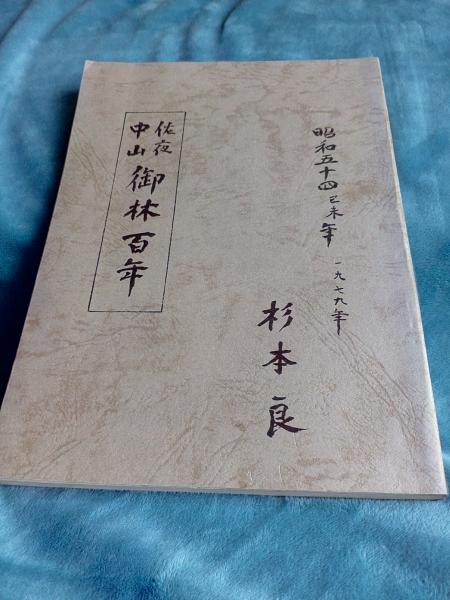 昭和五十四己未年
一九七九年
杉本良
佐夜
中山御林百年